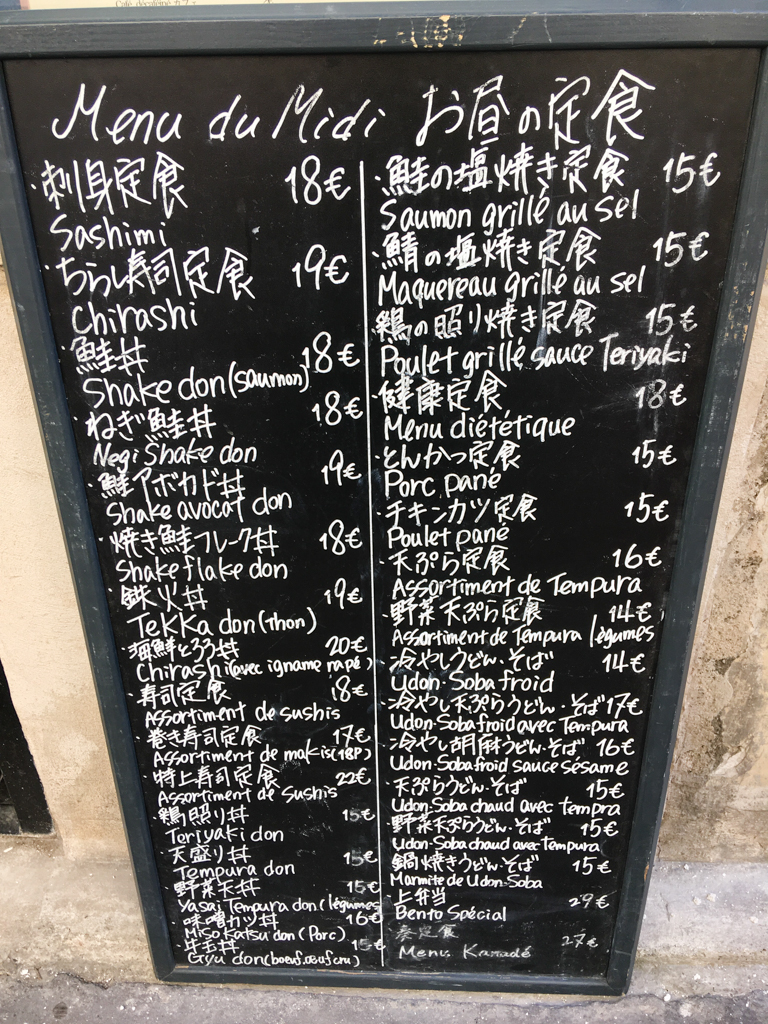 Café décaféiné カフェ
Menu du Midi お昼の定食
・刺身定食 18€
Sashimi
・ちらし寿司定食 19€
Chirashi
・鮭丼 18€
Shake don (saumon)
・ねぎ鮭丼 18€
Negi Shake don
・鮭アボカド丼 19€
Shake avocat don
・焼き鮭フレーク丼 18€
Shake flake don
・鉄火丼 19€
Tekka don (thon)
・海鮮とろろ丼 20€
Chirashi (avec igname rapé)
・寿司定食 18€
Assortiment de sushis
・巻き寿司定食 17€
Assortiment de makis (18P)
・特上寿司定食 22€
Assortiment de Sushis
・鶏照り丼 15€
Teriyaki don
・天盛り丼 15€
Tempura don
・野菜天丼 15€
Yasai Tempura don (légumes
・味噌カツ丼 16€
Miso Katsu don (Porc)
・牛玉丼 15€
Gyu don (boeuf, œuf cru)
・鮭の塩焼き定食 15€
Saumon grillé au sel
・鯖の塩焼き定食 15€
Maquereau grillé au sel
・鶏の照り焼き定食 15€
Poulet grillé sauce Teriyaki
・健康定食 18€
Menu diététique
・とんかつ定食 15€
Porc pané
・チキンカツ定食 15€
Poulet pané
・天ぷら定食 16€
Assortiment de Tempura
・野菜天ぷら定食 14€
Assortiment de Tempura légumes
・冷やしうどん・そば 14€
Udon・Soba froid
・冷やし天ぷらうどん・そば 17€
Udon・Soba froid avec Tempura
・冷やし胡麻うどん・そば 16€
Udon・Soba froid sauce sésame
・天ぷらうどん・そば 15€
Udon・Soba chaud avec tempra
・野菜天ぷらうどん・そば 15€
Udon・Soba chaud avec Tempura
・鍋焼きうどん・そば 15€
Marmite de Udon・Soba
・上弁当 29€
Bento Spécial
定食 27€
Menu Kanadé